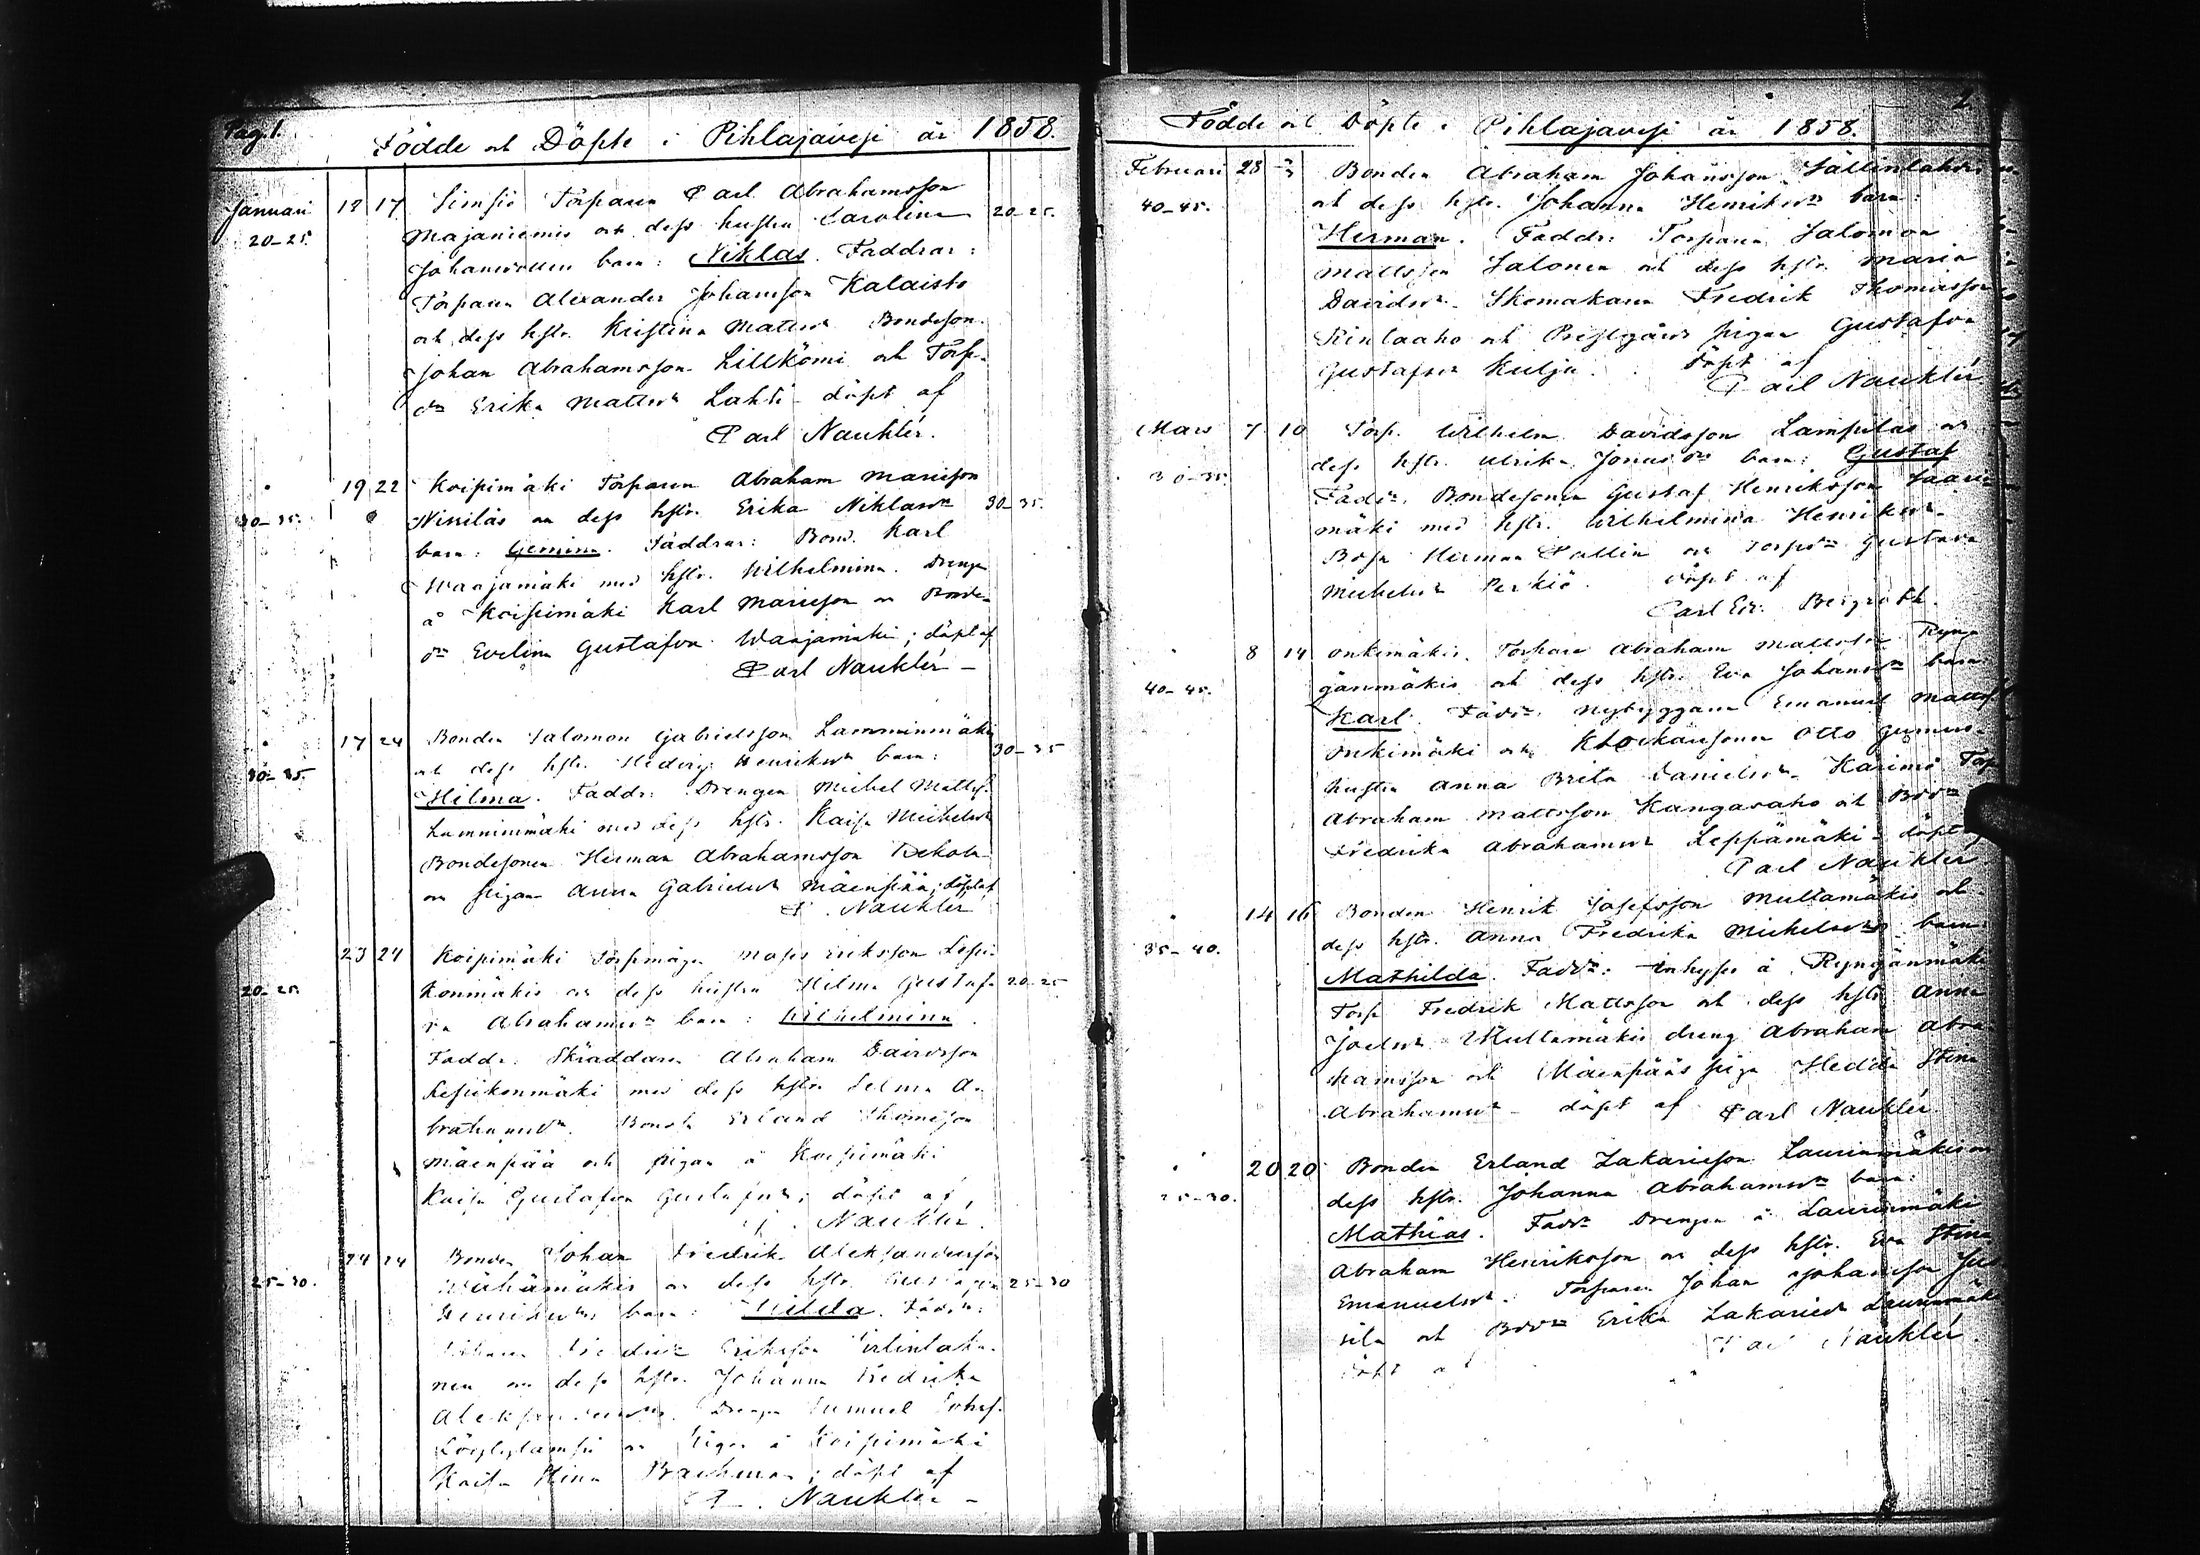 Pag. 1.
Födde och Döpte i Pihlajavesi år 1858.
Januari 18 17 Simsiö Torparen Carl Abrahamsson
20-25. Majaniemis och dess hustru Carolina 20-25.
Johansdotters barn: Niklas. Faddrar:
Torparen Alexander Johansson Kalaisto
och dess hstr. Kristina Mattsdr. Bondeson
Johan Abrahamsson Lillkömi och Torp.
dr Erika Mattsdr Lahti döpt af
Carl Nauklér.
19 22 Koipimäki Torparen Abraham
30-35. dess hstr. Erika Niklasdr 30-35.
barn: Faddrar: Bond. Karl
Waajamäki med hstr. Wilhelmina. Dreng
å Koipimäki Karl och Bonde-
dr Evelina Gustafva Waajamäki; döpt af
Carl Nauklér –
17 24 Bonden Salomon Gabrielsson Lamminmäki
30-35. och dess hstr. Hedvig Henriksdr barn: 30-35
Hilma. Faddr: Drengen Michel Matts.
Lamminmäki med dess hstr. Kaisa Michelsdr
Bondesonen Herman Abrahamsson
och pigan Anna Gabrielsdr Mäenpää; döpt af
C. Nauklér
23 24 Koipimäki Torpmågen Moses Eriksson
20-25. konmäkis och dess hustru Hilma Gustaf- 20-25
va Abrahamsdr barn: Wilhelmina.
Faddr. Skräddaren Abraham Davidsson
Lepikonmäki med dess hstr Selma A-
brahamsdr. Erland Thomasson
Mäenpää och pigan å Koipimäki
Kaisa Gustafva Gustafsdr; döpt af
C. Nauklér.
24 24 Bonden Johan Fredrik Aleksandersson
25-30. Wähämäkis och dess hstr. Gustafva 25-30
Henriksdrs barn: Hilda. Faddr:
Eriksson
nen och dess hstr. Johanna Fredrika
Dreng Samuel
och Pigan å Koipimäki
Kaisa Stina Backman; döpt af
C. Nauklér –
2.
Födde och Döpte i Pihlajavesi år 1858.
Februari 28 Bonden Abraham Johansson
40-45. och dess hstr. Johanna Henriksdrs barn:
Herman. Faddr: Torparen Salomon
Mattsson Salonen och dess hstr. Maria
Davidsdr. Skomakaren Fredrik Thomasson
och Prestgårds pigan Gustafva
Gustafsdr Kulju. döpt af
Carl Nauklér
Mars 7 10 Torp. Wilhelm Davidsson Lampilas och
30-35. dess hstr. Ulrika Jonasdrs barn: Gustaf
Faddr. Bondesonen Gustaf Henriksson Saari-
mäki med hstr. Wilhelmina Henriksdr.
Herman och Torpdr Gustava
Michelsdr Perkiö. döpt af
Carl Bergroth.
8 14 Onkimäkis Torpare Abraham Mattsson Ryng-
40-45. gänmäkis och dess hstr. Eva Johansdrs barn
Karl. Faddr. Nybyggaren Emanuel Matts.
Onkimäki och Klockaresonen Otto
hustru Anna Brita Danielsdr. Torp
Abraham Mattsson Kangasaho och Bdr
Fredrika Abrahamsdr Leppämäki döpt af
Carl Nauklér
14 16 Bonden Henrik Josefsson Multamäkis och
35-40. dess hstr. Anna Fredrika Michelsdrs barn:
Mathilda. Faddr: Inhyses å Ryngänmäki
Torp Fredrik Mattsson och dess hstr Anna
Joelsdr Multamäkis dreng Abraham Abra-
hamsson och Mäenpääs piga Hedda Stina
Abrahamsdr döpt af Carl Nauklér
20 20 Bonden Erland Zakarisson Laurinmäkis och
25-30. dess hstr. Johanna Abrahamsdrs barn:
Mathias. Faddr Drengen å Laurinmäki
Abraham Henriksson och dess hstr. Eva Stina
Emanuelsdr. Torparen Johan Johansson
och Bdr Erika Zakarisdr Laurinmäki
döpt af Carl Nauklér.